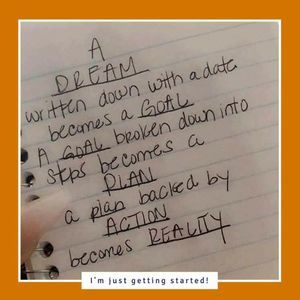 A
DREAM
written down with a date
becomes a GOAL
A GOAL broken down into
steps becomes a
PLAN
a plan backed by
ACTION
becomes REALITY
I'm just getting started!